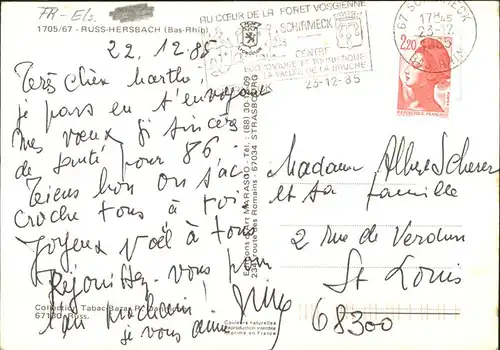 FR-Els.
1705/67 - RUSS-HERSBACH (Bas-Rhin)
22.12.85
Très chère Marthe,
je pars en t'envoyant
mes vœux si sincères
de santé pour 86.
Tiens bon on s'ac
croche tous à toi
Joyeux Noël à tous
Réjouissez-vous, pour
l'an prochain!
je vous aime
Collection Tabac-Bazar R. Daniel
67130 Russ.
Editions d'art MARASCO - Tél.: (88) 30-09
234 route des Romains - 67034 STRASBOURG
Couleurs naturelles
Reproduction interdite
Imprimé en France
AU CŒUR DE LA FORET VOSGIENNE
SCHIRMECK
CENTRE
HISTORIQUE ET TOURISTIQUE
LA VALLEE DE LA BRUCHE
23-12-85
67 SCHIRMECK
17H45
23-12
1985
BAS-RHIN
2,20
REPUBLIQUE FRANÇAISE
Madame Albert Scherer
et sa famille
2 rue de Verdun
St Louis
68300